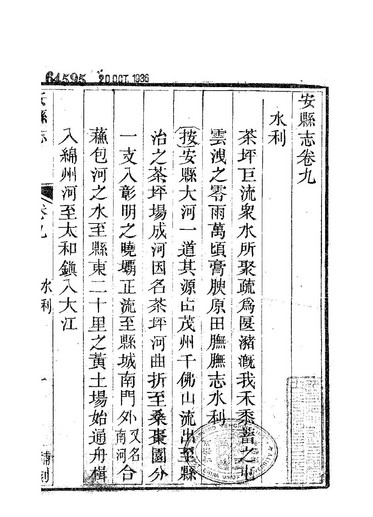 64595 20 OCT. 1936
安縣志卷九
水利
茶坪巨流衆水所聚疏爲匽瀦漑我禾黍蓄之屯
雲洩之零雨萬頃膏腴原田膴膴志水利
按安縣大河一道其源出茂州千佛山流出至縣
治之茶坪場成河因名茶坪河曲折至桑棗園分
一支入彰明之曉壩正流至縣城南門外又名南河合
蘓包河之水至縣東二十里之黃土場始通舟楫
入綿州河至太和鎭入大江
縣志
卷九
水利
一